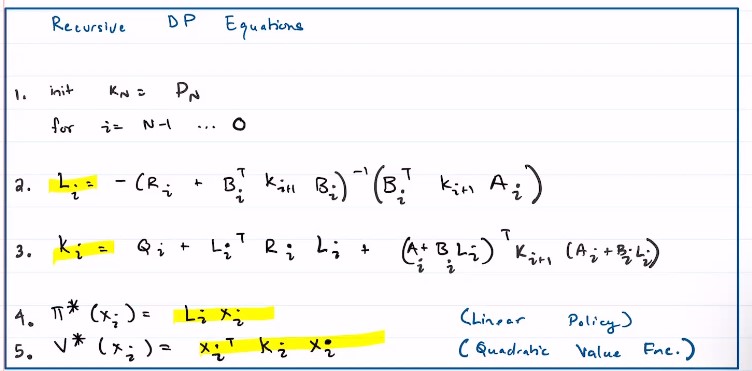 Recursive DP Equations
1. init K_N = P_N
for i = N-1 ... 0
2. L_i = - (R_i + B_i^T K_{i+1} B_i)^{-1} (B_i^T K_{i+1} A_i)
3. K_i = Q_i + L_i^T R_i L_i + (A_i + B_i L_i)^T K_{i+1} (A_i + B_i L_i)
4. π* (x_i) = L_i x_i (Linear Policy)
5. V* (x_i) = x_i^T K_i x_i (Quadratic Value Fnc.)